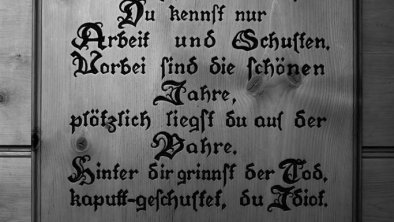 Du kennst nur
Arbeit und Schuften.
Vorbei sind die schönen
Jahre,
plötzlich liegst du auf der
Bahre.
Hinter dir grinst der Tod,
kaputt-geschuftet, du Idiot.